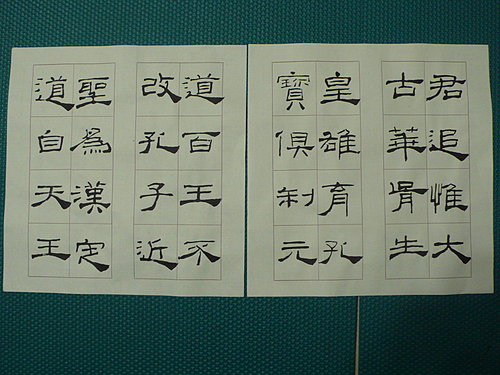 君追惟大
古華胥生
皇雄育孔
寶俱制元
道百王不
改孔子近
聖爲漢定
道自天王